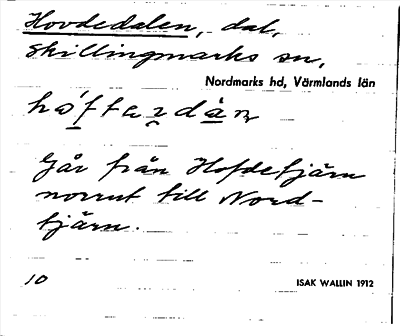 Hovdedalen, dal,
Skillingmarks sn,
Nordmarks hd, Värmlands län
Går från Hofdetjärn
norrut till Nord-
tjärn.
10 ISAK WALLIN 1912